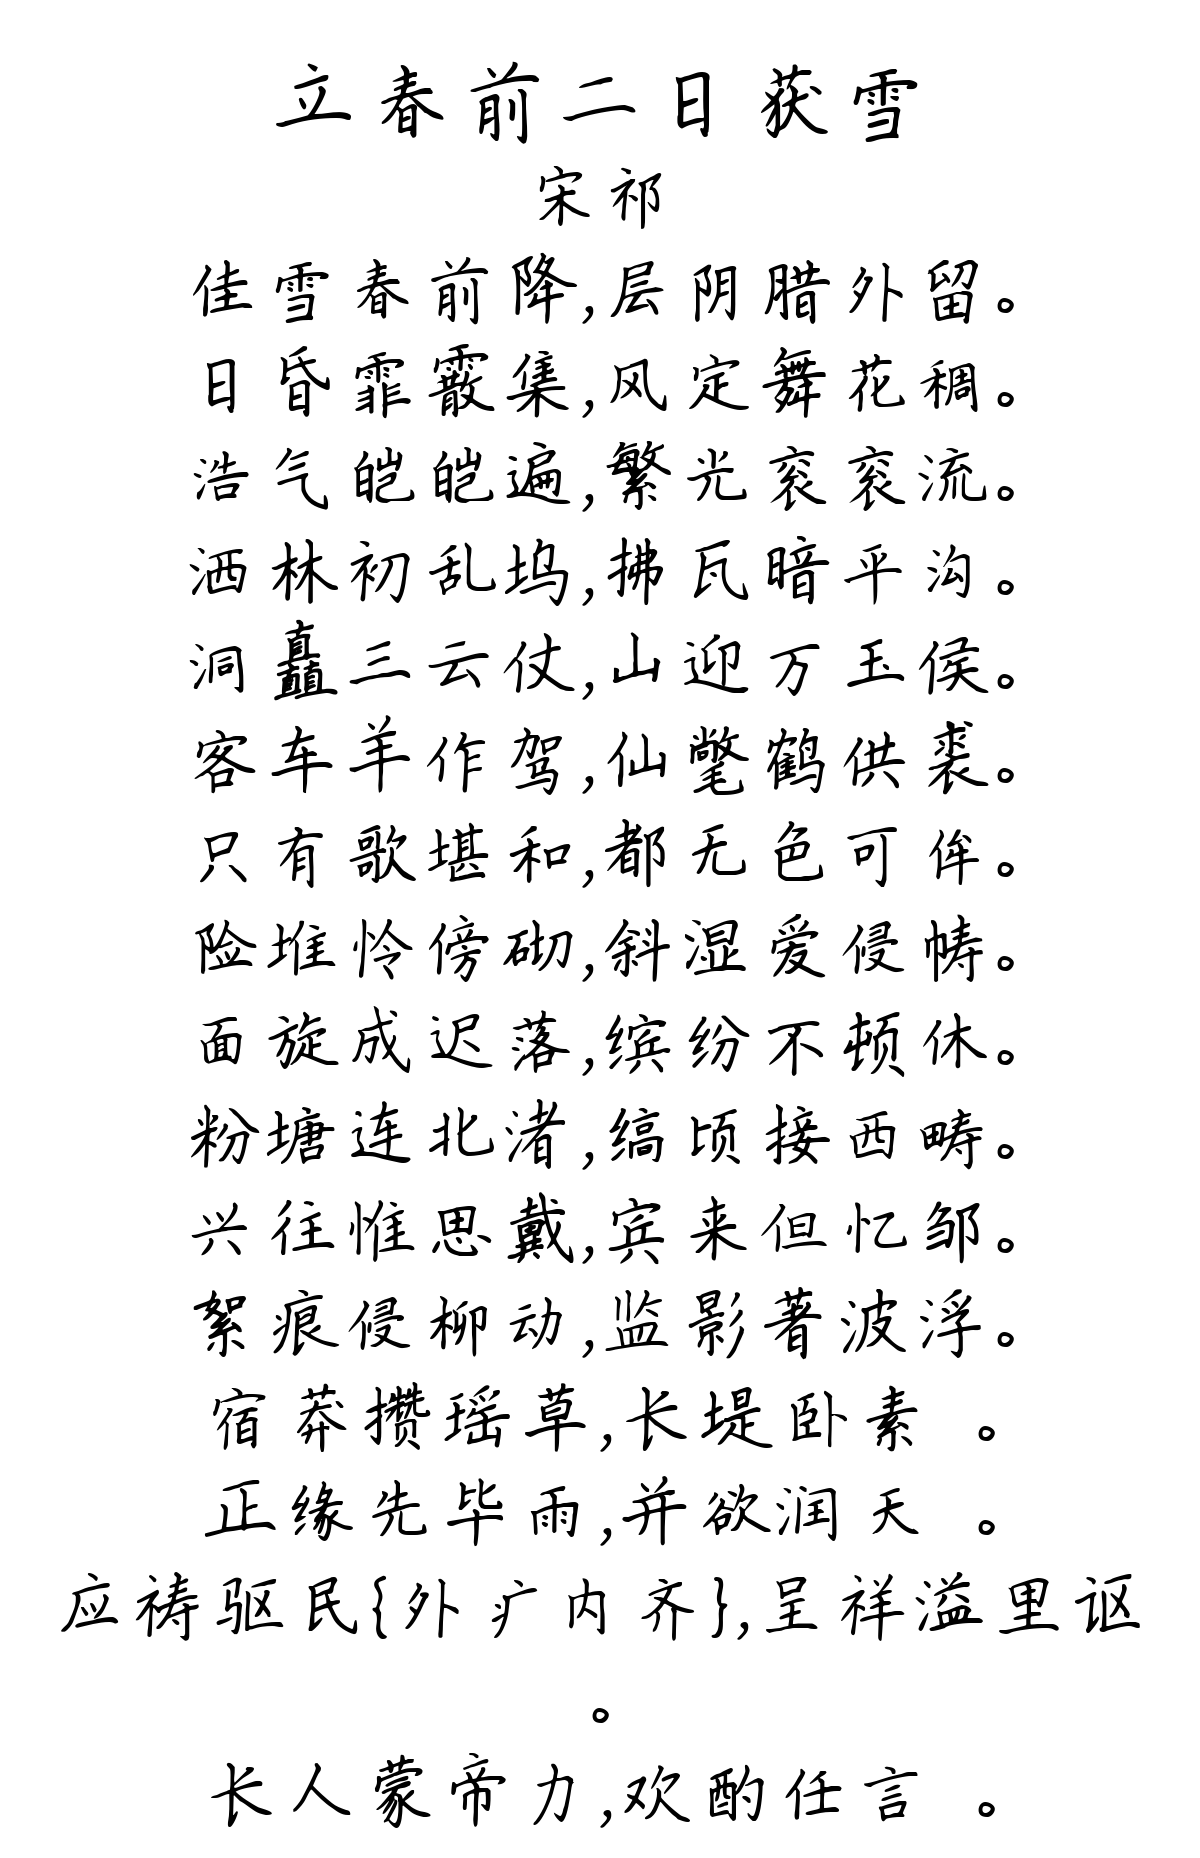 立春前二日获雪
宋祁
佳雪春前降,层阴腊外留。
日昏霏霰集,风定舞花稠。
浩气皑皑遍,繁光衮衮流。
洒林初乱坞,拂瓦暗平沟。
洞矗三云仗,山迎万玉侯。
客车羊作驾,仙氅鹤供裘。
只有歌堪和,都无色可侔。
险堆怜傍砌,斜湿爱侵帱。
面旋成迟落,缤纷不顿休。
粉塘连北渚,缟顷接西畴。
兴往惟思戴,宾来但忆邹。
絮痕侵柳动,监影著波浮。
宿莽攒瑶草,长堤卧素 。
正缘先毕雨,并欲润天 。
应祷驱民{外疒内齐},呈祥溢里讴
。
长人蒙帝力,欢酌任言 。